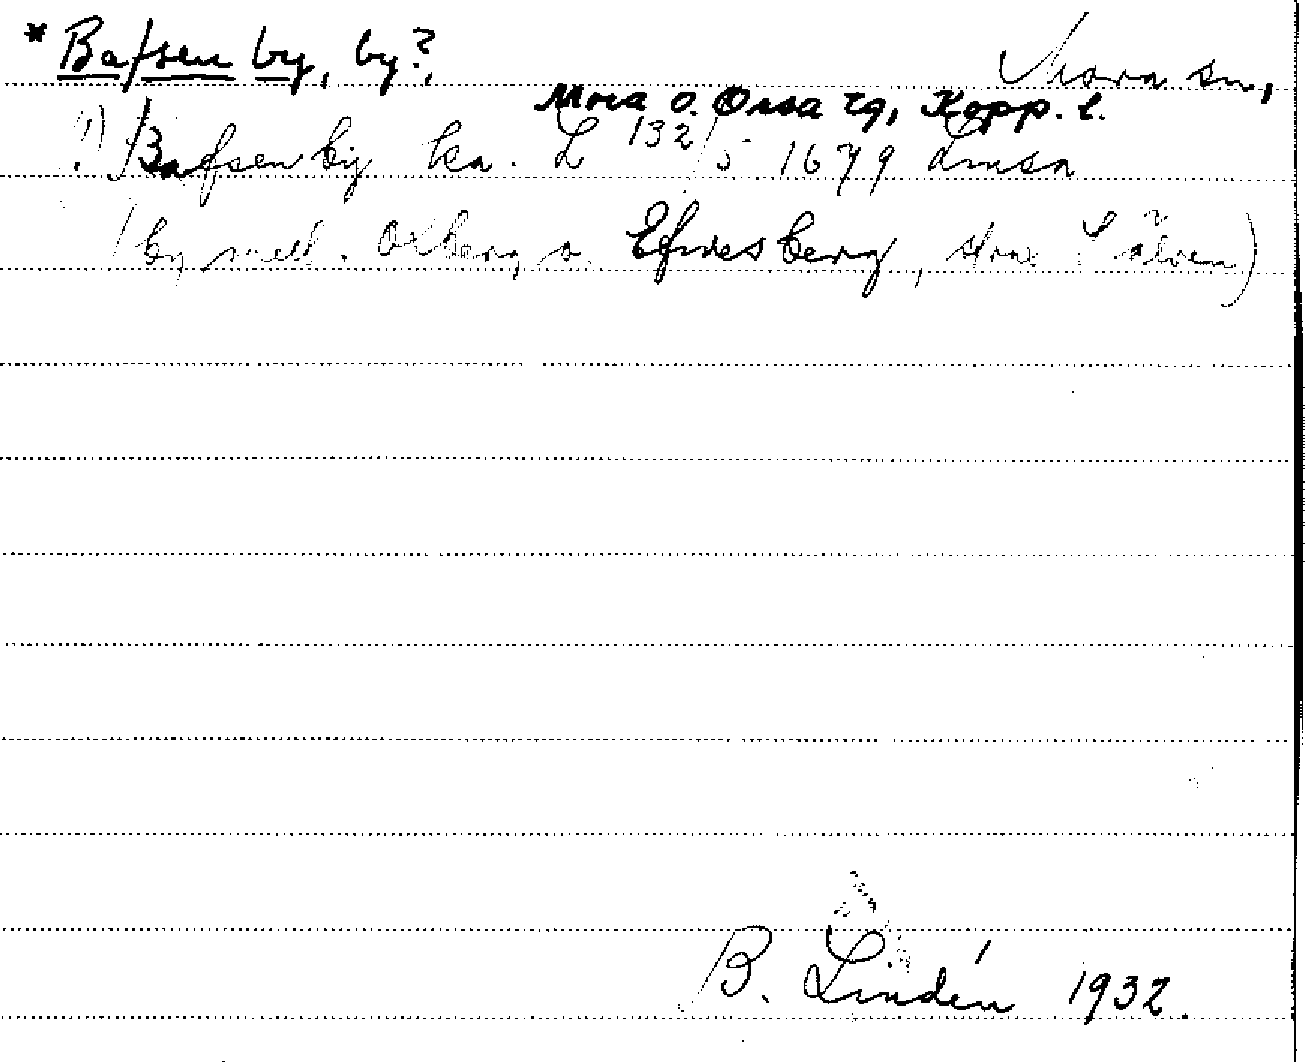 * Bafsen by, by?, Mora sn,
Mora o. Orsa tg, Kopp. l.
(!) Bafsenby ka. L 132/5 1679 Lmsa
(by mell. Oxberg o. Efvesberg, strax i älven)
B. Lindén 1932.